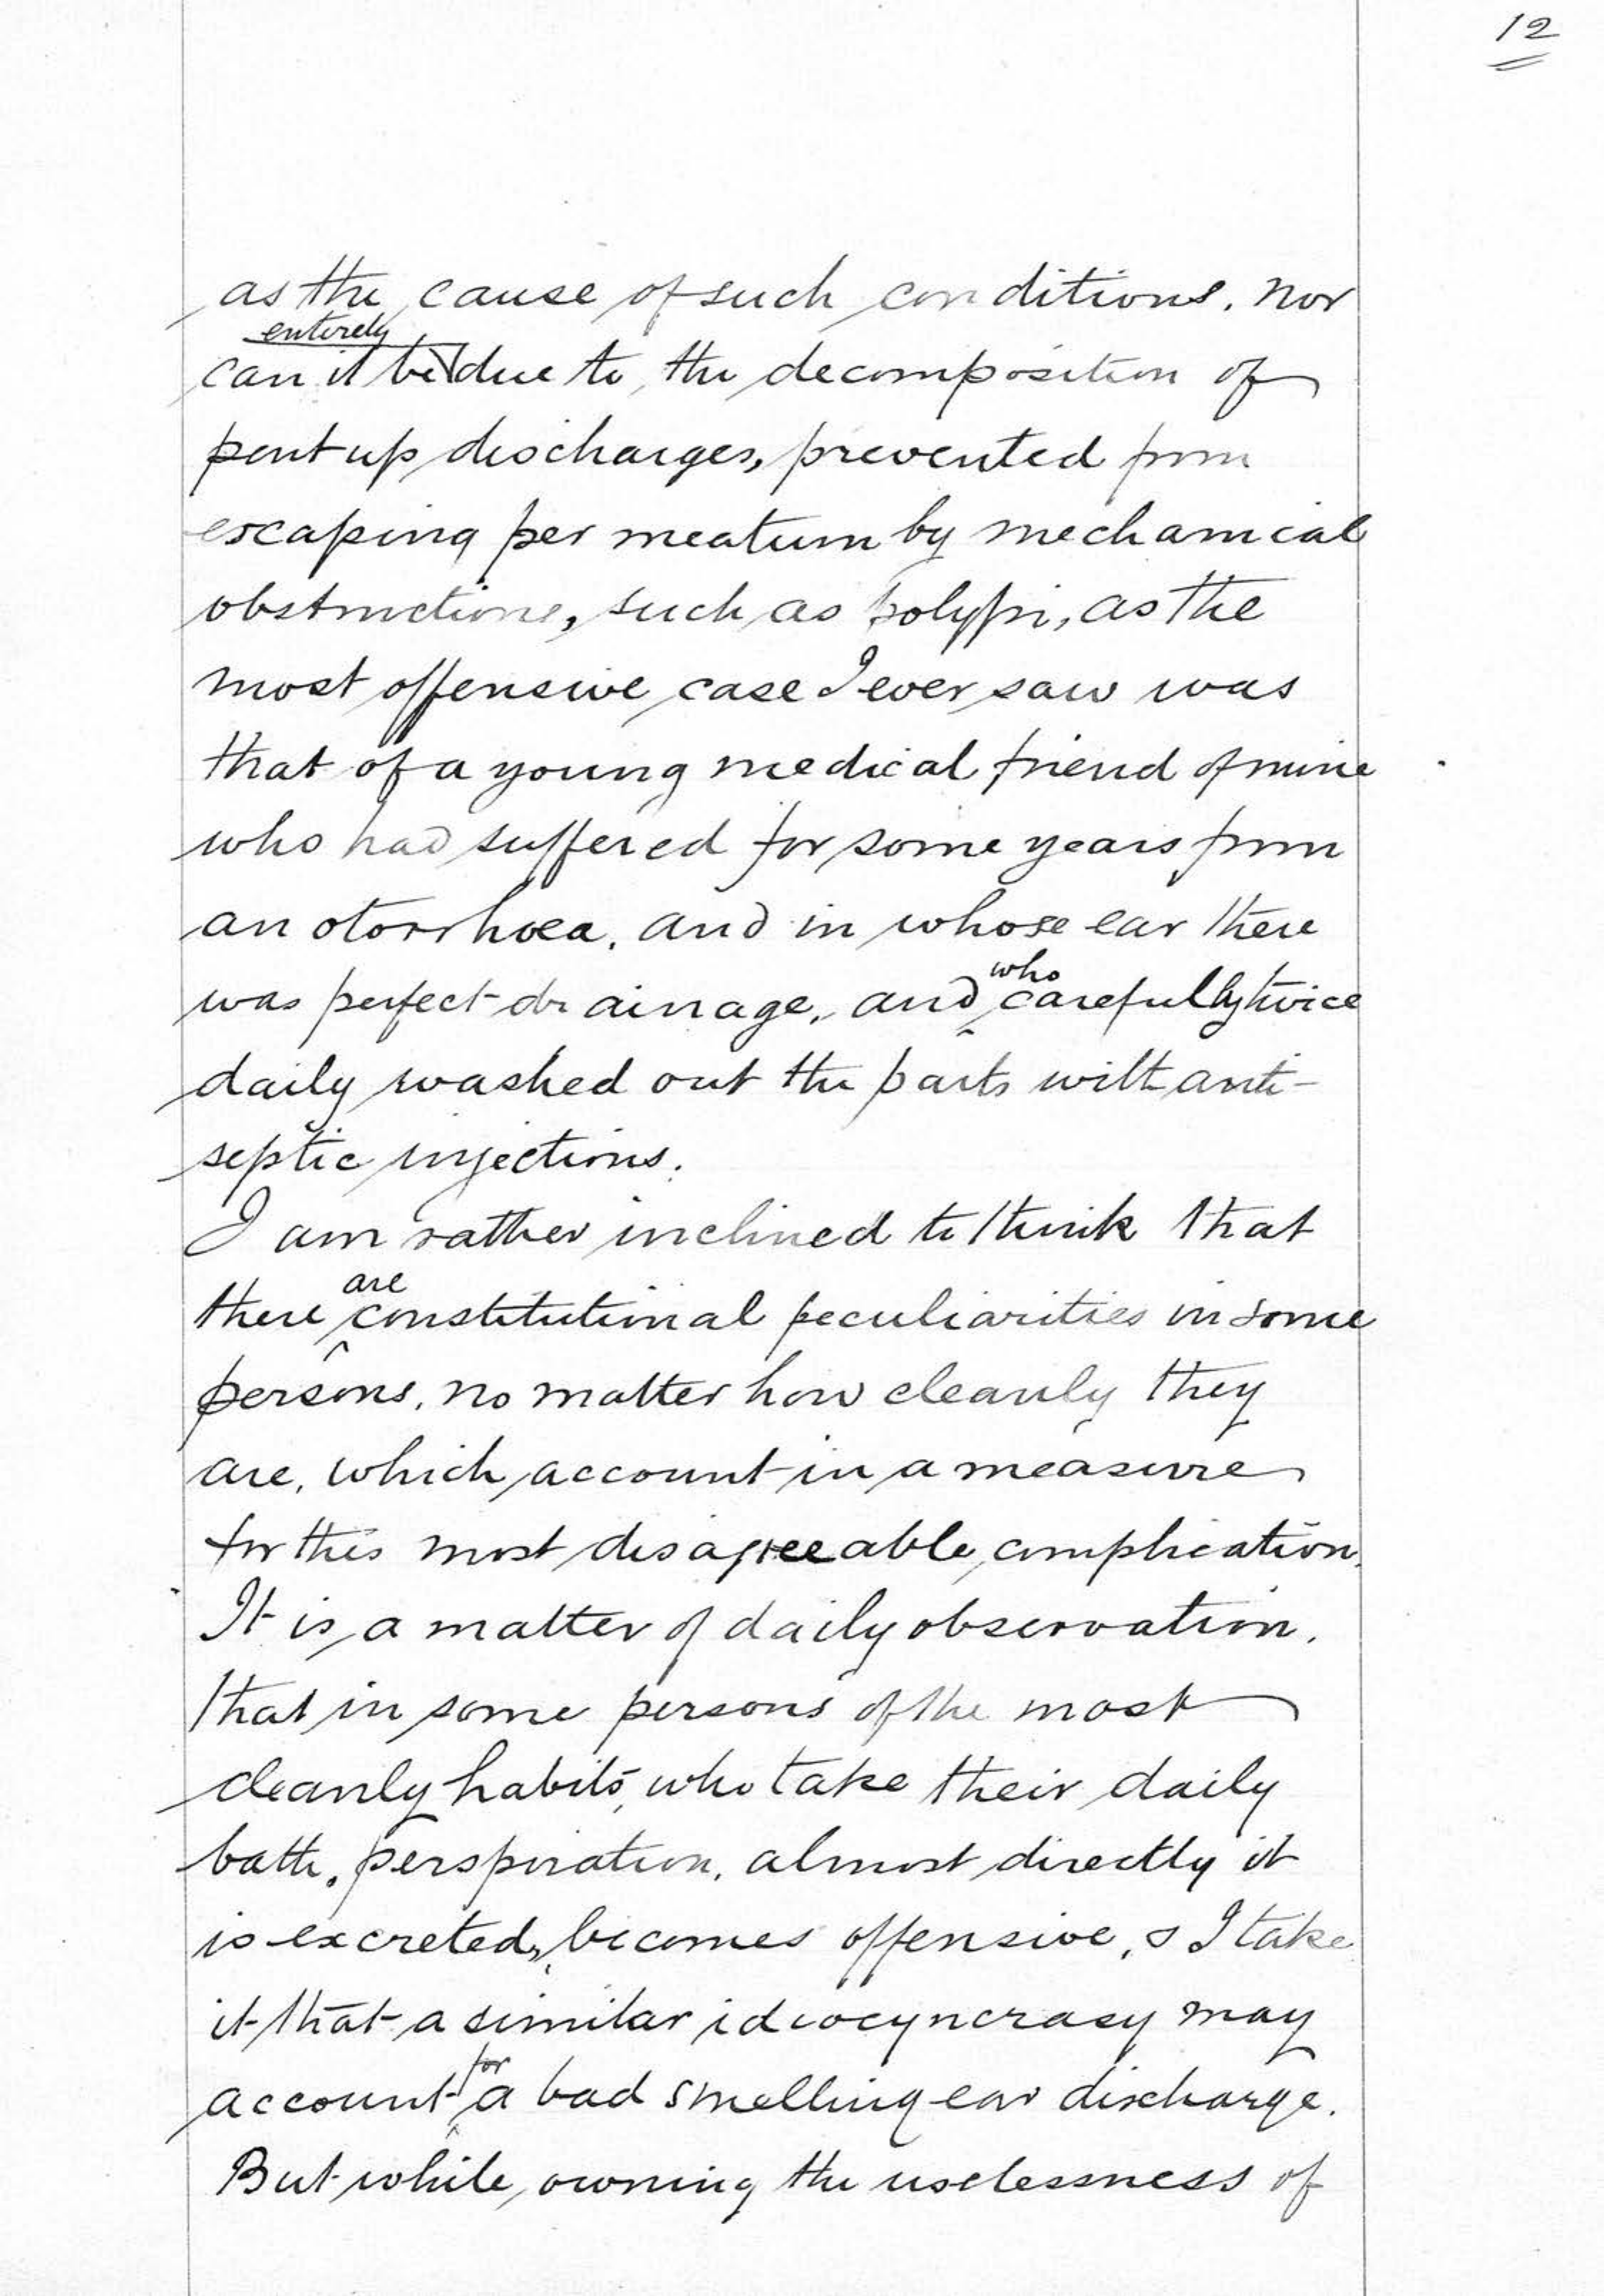 12
as the cause of such conditions. Nor
entirely
can it be due to the decomposition of
pent up discharges, prevented from
escaping per meatum by mechanical
obstructions, such as polypi, as the
most offensive case I ever saw was
that of a young medical friend of mine
who had suffered for some years from
an otorrhoea, and in whose ear there
was perfect drainage, and who carefully twice
daily washed out the parts with anti-
septic injections.
I am rather inclined to think that
there are constitutional peculiarities in some
persons, no matter how cleanly they
are, which account in a measure
for this most disagreeable complication.
It is a matter of daily observation,
that in some persons of the most
cleanly habits, who take their daily
bath, perspiration, almost directly it
is excreted, becomes offensive, & I take
it that a similar idiocyncrasy may
account for a bad smelling ear discharge.
But while owning the uselessness of